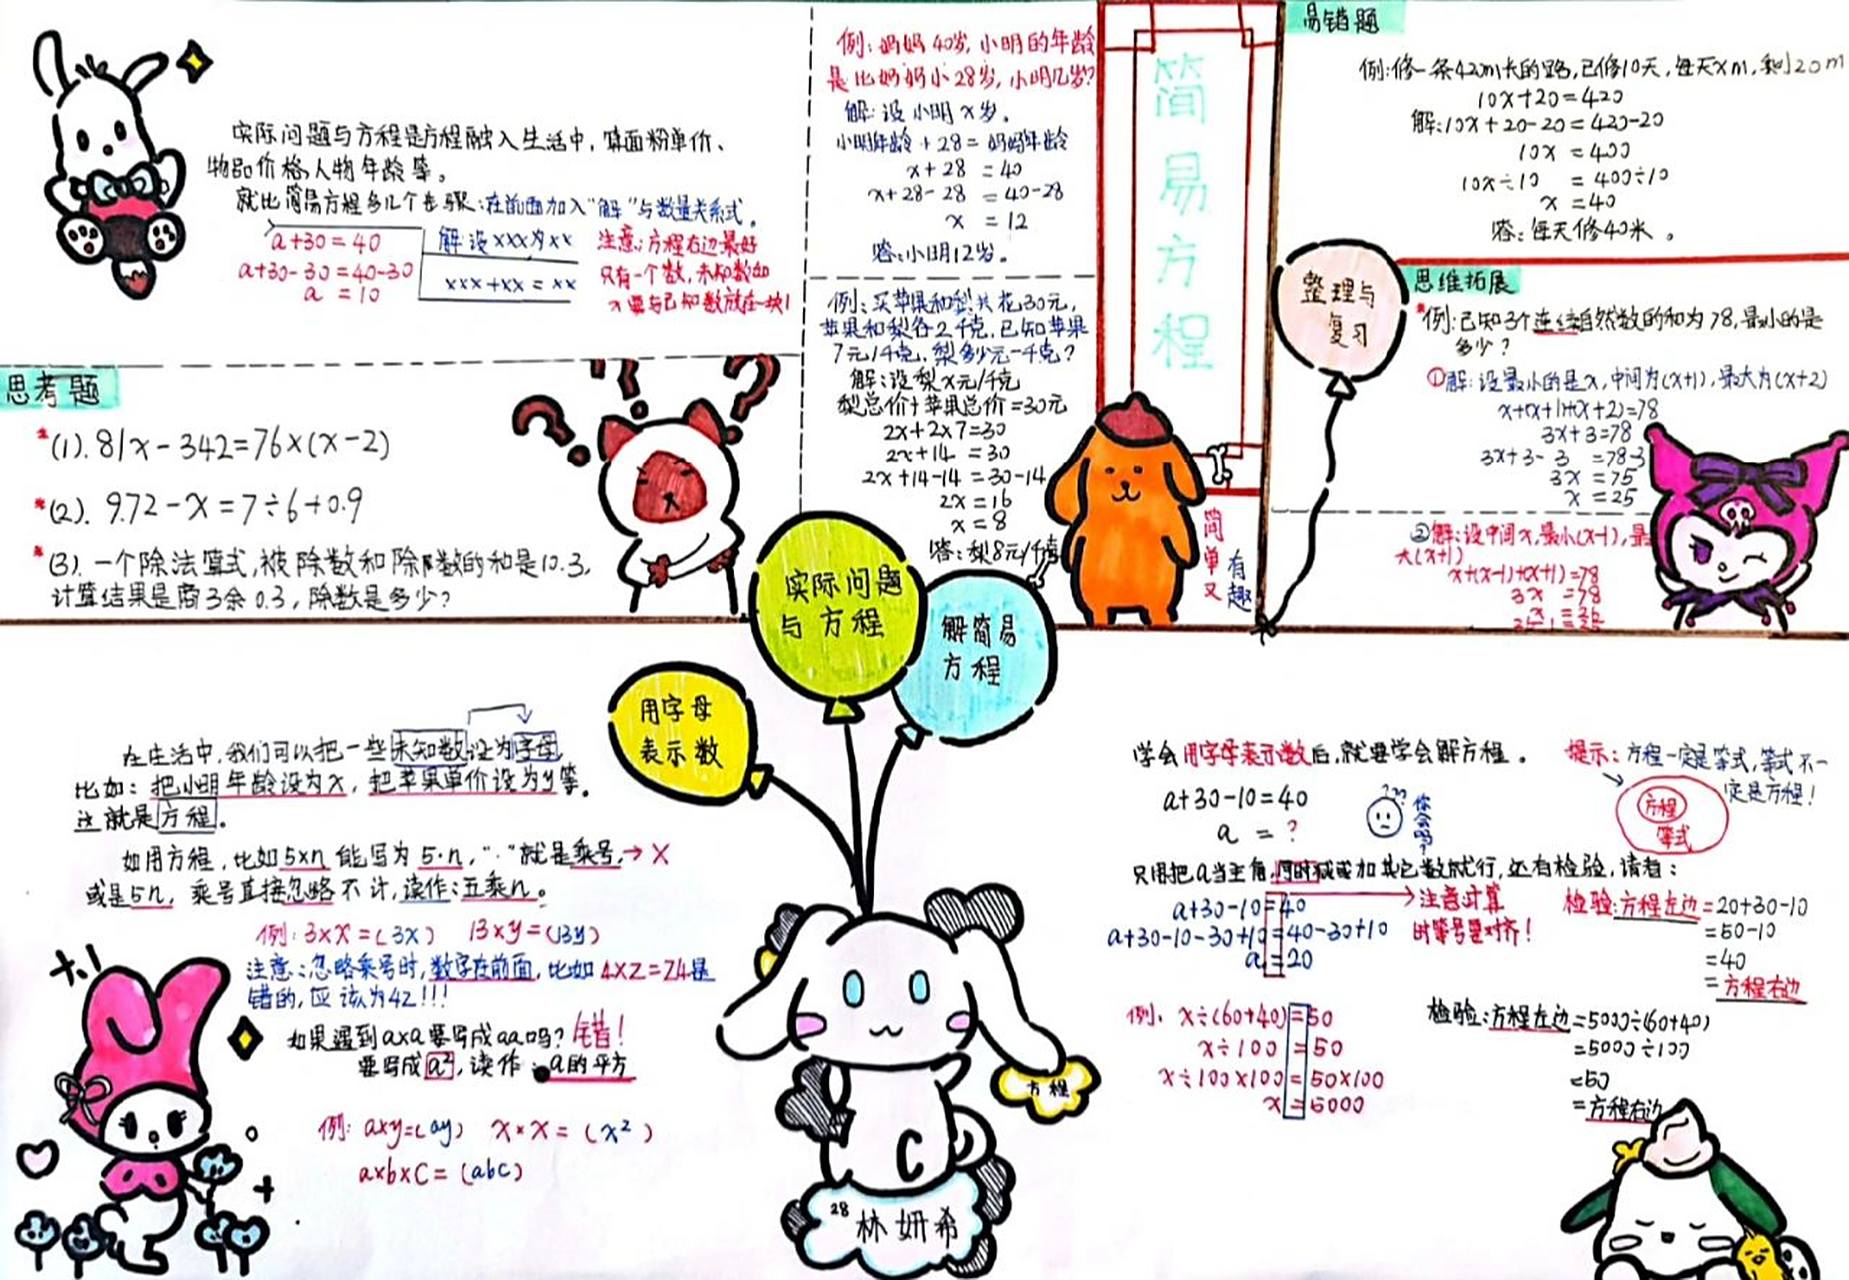 实际问题与方程是方程融入生活中，算面粉单价、
物品价格人物年龄等。
就比简易方程多几个步骤:在前面加入"解"与数量关系式。
a+30=40
a+30-30=40-30
a=10
解:设xxx为xx
xxx+xx=xx
注意:方程右边最好
只有一个数,未知数如
x要与已知数放在一块!
例:妈妈40岁,小明的年龄
是比妈妈小28岁,小明几岁?
解:设小明x岁.
小明年龄+28=妈妈年龄
x+28=40
x+28-28=40-28
x=12
答:小明12岁。
例:买苹果和梨共花30元,
苹果和梨各2千克,已知苹果
7元1千克,梨多少元一千克?
解:设梨x元/千克
梨总价+苹果总价=30元
2x+2x7=30
2x+14=30
2x+14-14=30-14
2x=16
x=8
答:梨8元/千克
简易方程
简单又
有趣
易错题
例:修一条42m长的路,已修10天,每天xm,剩20m
10x+20=420
解:10x+20-20=420-20
10x=400
10x÷10=400÷10
x=40
答:每天修40米。
整理与
复习
思维拓展
例:已知3个连续自然数的和为78,最小的是
多少?
①解:设最小的是x,中间为(x+1),最大为(x+2)
x+(x+1)+(x+2)=78
3x+3=78
3x+3-3=78-3
3x=75
x=25
②解:设中间x,最小(x-1),最
大(x+1)
x+(x-1)+(x+1)=78
3x=78
思考题
(1).81x-342=76x(x-2)
(2).9.72-x=7÷6+0.9
(3).一个除法算式,被除数和除数的和是10.3,
计算结果是商3余0.3,除数是多少?
实际问题
与方程
解简易
方程
用字母
表示数
在生活中,我们可以把一些未知数设为字母,
比如:把小明年龄设为x,把苹果单价设为y等。
这就是方程。
如用方程,比如5xn能写为5·n,"·"就是乘号,→X
或是5n,乘号直接忽略不计,读作:五乘n。
例:3xX=(3x) 13xy=(13y)
注意:忽略乘号时,数字在前面,比如4XZ=Z4是
错的,应该为4Z!!!
如果遇到axa要写成aa吗?错!
要写成a²,读作:a的平方
例:axy=(ay) x×x=(x²)
axbxC=(abc)
方程
28 林妍希
学会用字母表示数后,就要学会解方程。
a+30-10=40
a=?
???
你会吗?
提示:方程一定是等式,等式不一
定是方程!
方程
等式
只用把a当主角,同时减或加其它数就行,还有检验,请看:
a+30-10=40
a+30-10-30+10=40-30+10
a=20
注意计算
时等号要对齐!
检验:方程左边=20+30-10
=50-10
=40
=方程右边
例:x÷(60+40)=50
x÷100=50
x÷100x100=50x100
x=5000
检验:方程左边=5000÷(60+40)
=5000÷100
=50
=方程右边